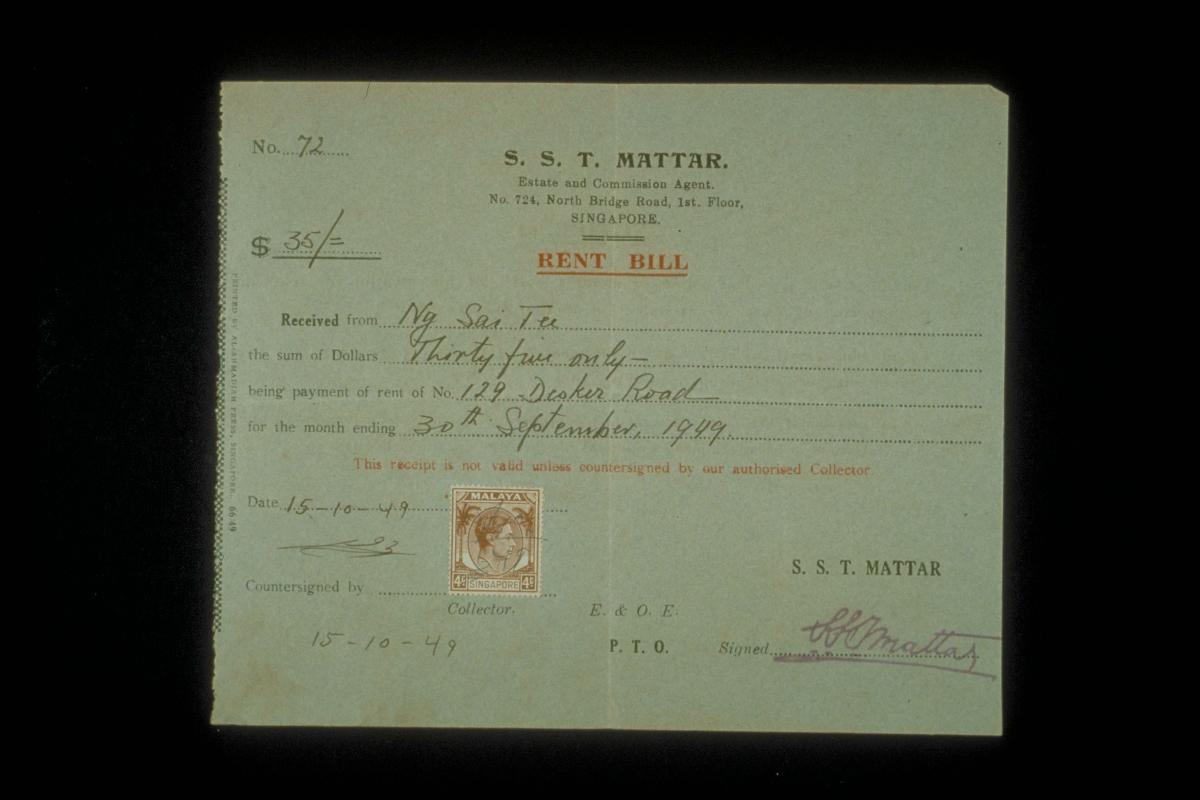 No. 72
S. S. T. MATTAR.
Estate and Commission Agent.
No. 724, North Bridge Road, 1st. Floor,
SINGAPORE.
$ 35/=
RENT BILL
Received from Ng Sai Tee
the sum of Dollars Thirty five only—
being payment of rent of No. 129 Desker Road
for the month ending 30th September, 1949.
This receipt is not valid unless countersigned by our authorised Collector.
Date 15-10-49
MALAYA
4c SINGAPORE 4c
S. S. T. MATTAR
Countersigned by
Collector.
E. & O. E.
15-10-49
P. T. O.
Signed SSTMattar
PRINTED BY AL-AHMADIAH PRESS, SINGAPORE. 66/49